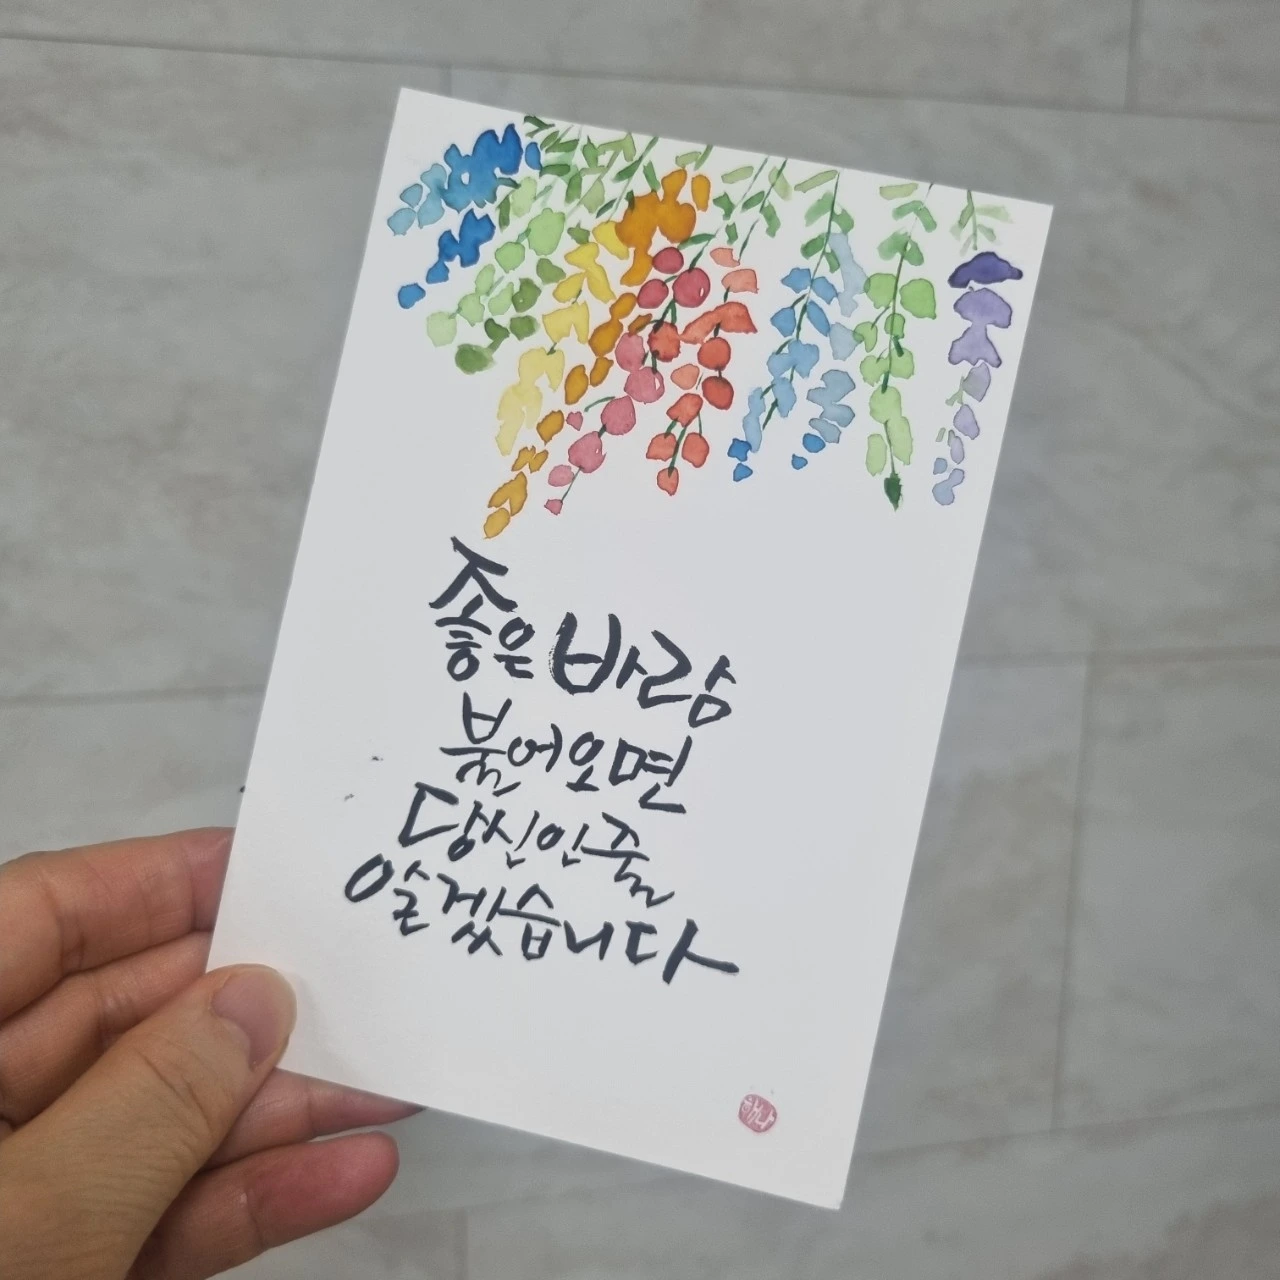 좋은 바람
불어오면
당신인줄
알겠습니다